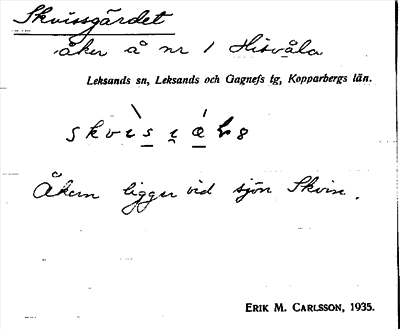 Skvissgärdet
åker å nr 1 Hisvåla
Leksands sn, Leksands och Gagnefs tg, Kopparbergs län.
Åkern ligger vid sjön Skvin.
ERIK M. CARLSSON, 1935.